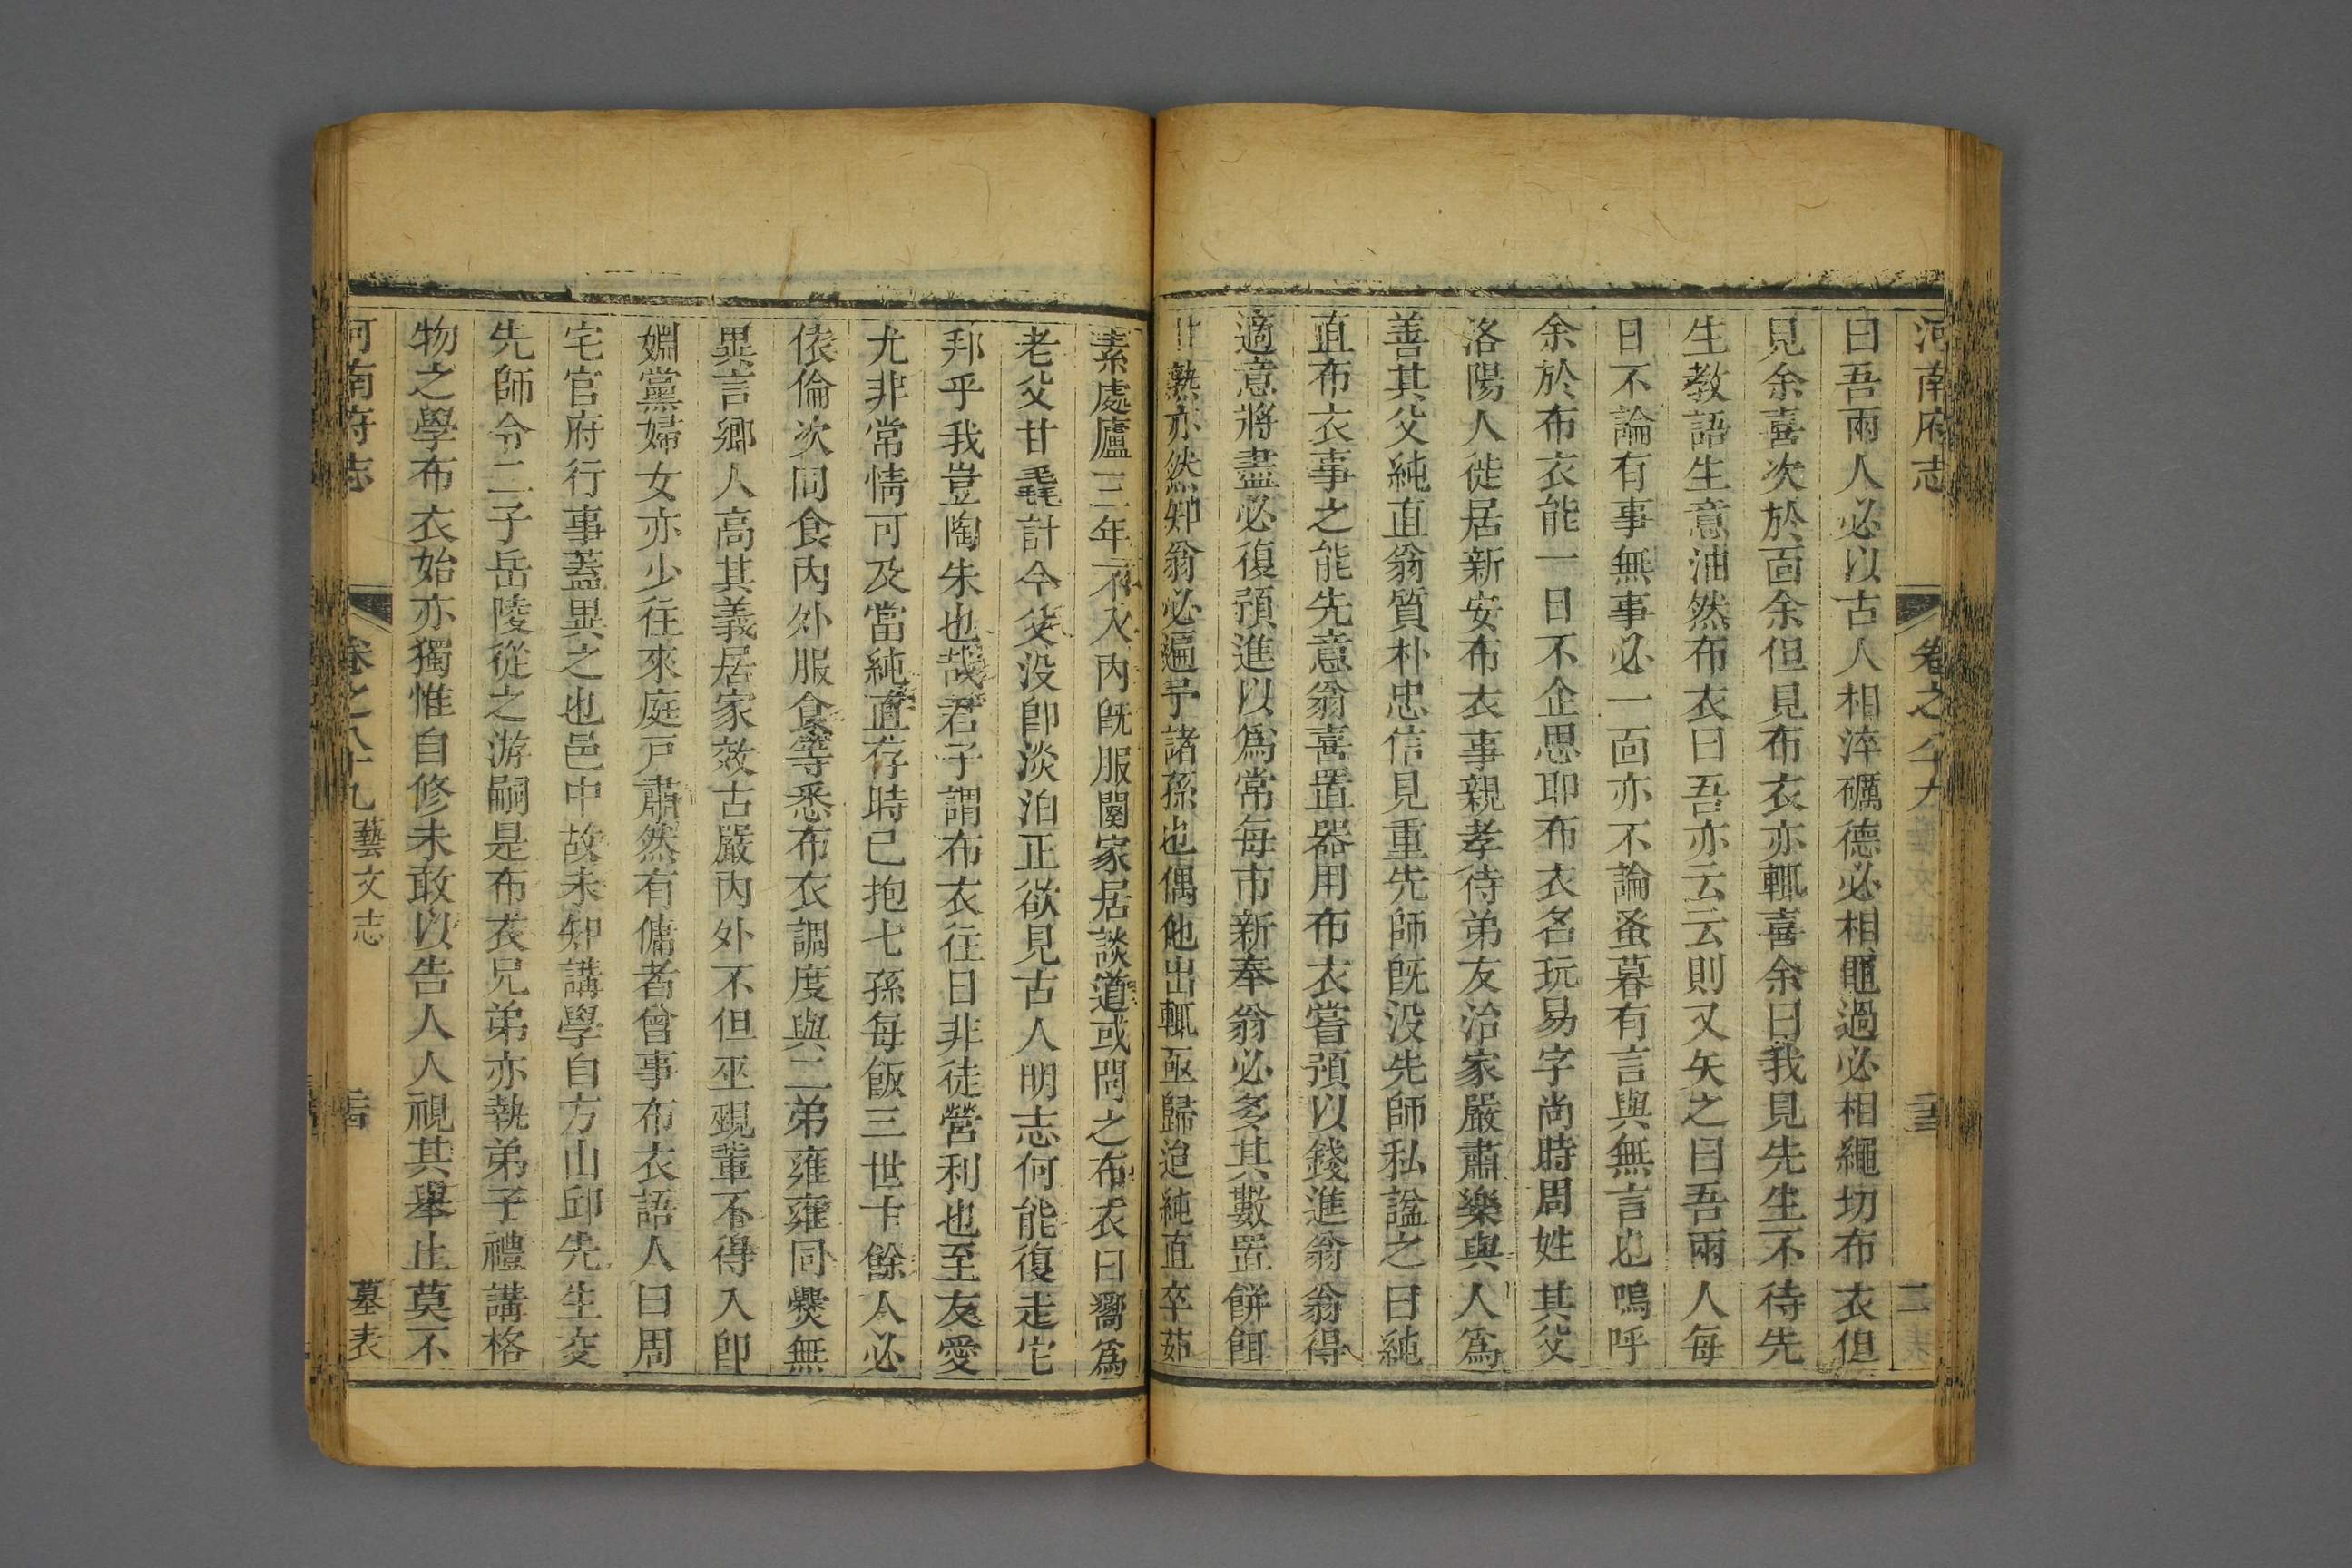 河南府志 卷之八十九 二
曰吾兩人必以古人相淬礪德必相勖過必相繩切布衣但
見余喜次於面余但見布衣亦輒喜余曰我見先生不待先
生教語生意油然布衣曰吾亦云云則又矢之曰吾兩人每
日不論有事無事必一面亦不論蚤暮有言與無言也嗚呼
余於布衣能一日不企思耶布衣名玩易字尚時周姓其父
洛陽人徙居新安布衣事親孝待弟友治家嚴肅樂與人爲
善其父純直翁質朴忠信見重先師旣没先師私諡之曰純
直布衣事之能先意翁喜置器用布衣嘗預以錢進翁翁得
適意將盡必復預進以爲常每市新奉翁必多其數置餅餌
熟亦然知翁必遍予諸孫也偶他出輒亟歸迨純直卒茹
素處廬三年不入內旣服闋家居談道或問之布衣曰嚮爲
老父甘毳計今父没卽淡泊正欲見古人明志何能復走它
邦乎我豈陶朱也哉君子謂布衣往日非徒營利也至友愛
尤非常情可及當純直存時已抱七孫每飯三世十餘人必
依倫次同食內外服食等悉布衣調度與二弟雍雍同爨無
異言鄉人高其義居家效古嚴內外不但巫覡輩不得入卽
婣黨婦女亦少往來庭戸肅然有傭者曾事布衣語人曰周
宅官府行事蓋異之也邑中故未知講學自方山邱先生交
先師令二子岳陵從之游嗣是布衣兄弟亦執弟子禮講格
物之學布衣始亦獨惟自修未敢以告人人視其舉止莫不
河南府志 卷之八十九 藝文志 墓表